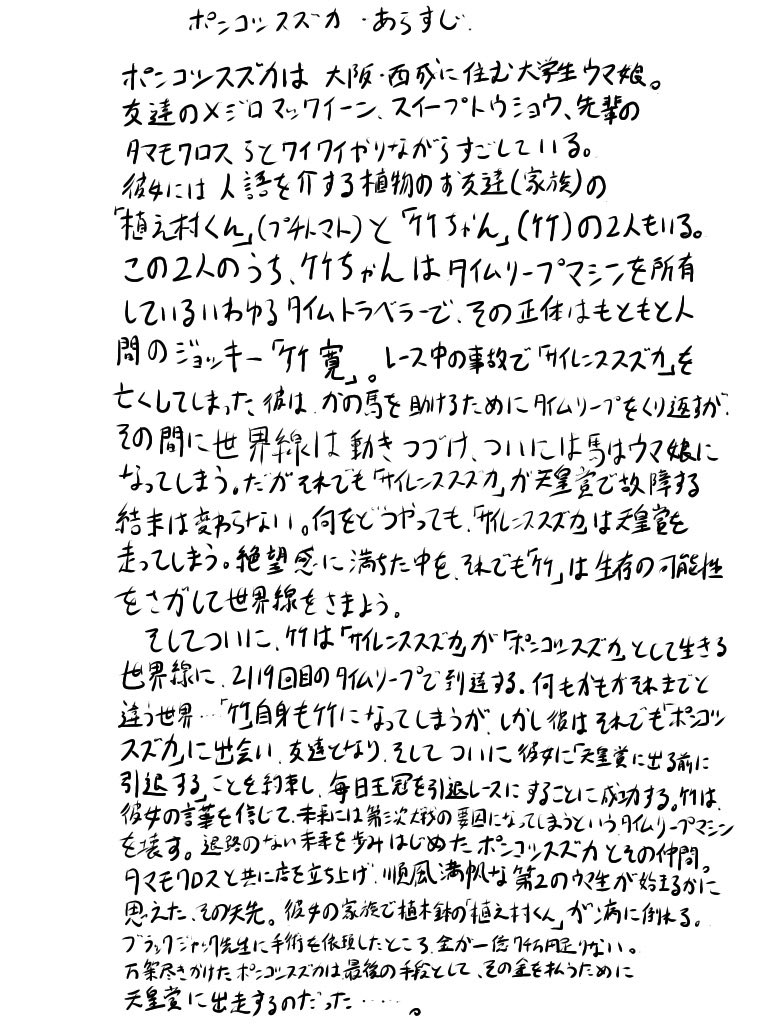 ポンコツスズカ・あらすじ.
ポンコツスズカは 大阪・西成に住む大学生ウマ娘。
友達のメジロマックイーン、スイープトウショウ、先輩の
タマモクロスらとワイワイやりながらすごしている。
彼女には 人語を介する植物のお友達(家族)の
「植え村くん」(プチトマト)と「竹ちゃん」(竹)の2人もいる。
この2人のうち、竹ちゃんはタイムリープマシンを所有
しているいわゆるタイムトラベラーで、その正体はもともと人
間のジョッキー「竹 寛」。レース中の事故で「サイレンススズカ」を
亡くしてしまった彼は、かの馬を助けるためにタイムリープをくり返すが、
その間に世界線は動きつづけ、ついには馬はウマ娘に
なってしまう。だがそれでも「サイレンススズカ」が天皇賞で故障する
結末は変わらない。何をどうやっても、「サイレンススズカ」は天皇賞を
走ってしまう。絶望感に満ちた中を、それでも「竹」は生存の可能性
をさがして世界線をさまよう。
そしてついに、竹は「サイレンススズカ」が「ポンコツスズカ」として生きる
世界線に、2119回目のタイムリープで到達する。何もかもがそれまでと
違う世界…「竹」自身も竹になってしまうが、しかし彼はそれでも「ポンコツ
スズカ」に出会い、友達となり、そして ついに彼女に「天皇賞に出る前に
引退する」ことを約束し、毎日王冠を引退レースにすることに成功する。竹は、
彼女の言葉を信じて、未来には第三次大戦の要因になってしまうというタイムリープマシン
を壊す。退路のない未来を歩みはじめたポンコツスズカとその仲間。
タマモクロスと共に店を立ち上げ、順風満帆な第2のウマ生が始まるかに
思えた、その矢先。彼女の家族で植木鉢の「植え村くん」が病に倒れる。
ブラックジャック先生に手術を依頼したところ、金が一億7千万円足りない。
万策尽きかけたポンコツスズカは最後の手段として、その金を払うために
天皇賞に出走するのだった……。